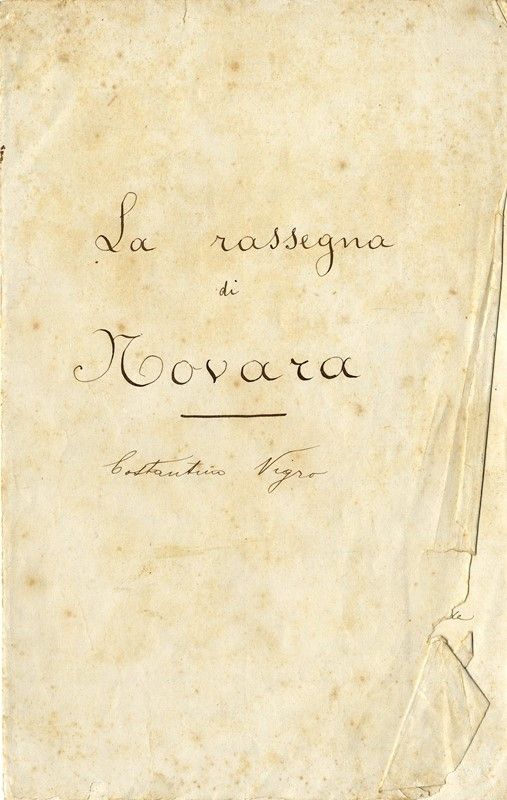 La rassegna
di
Novara
Costantino Nigro